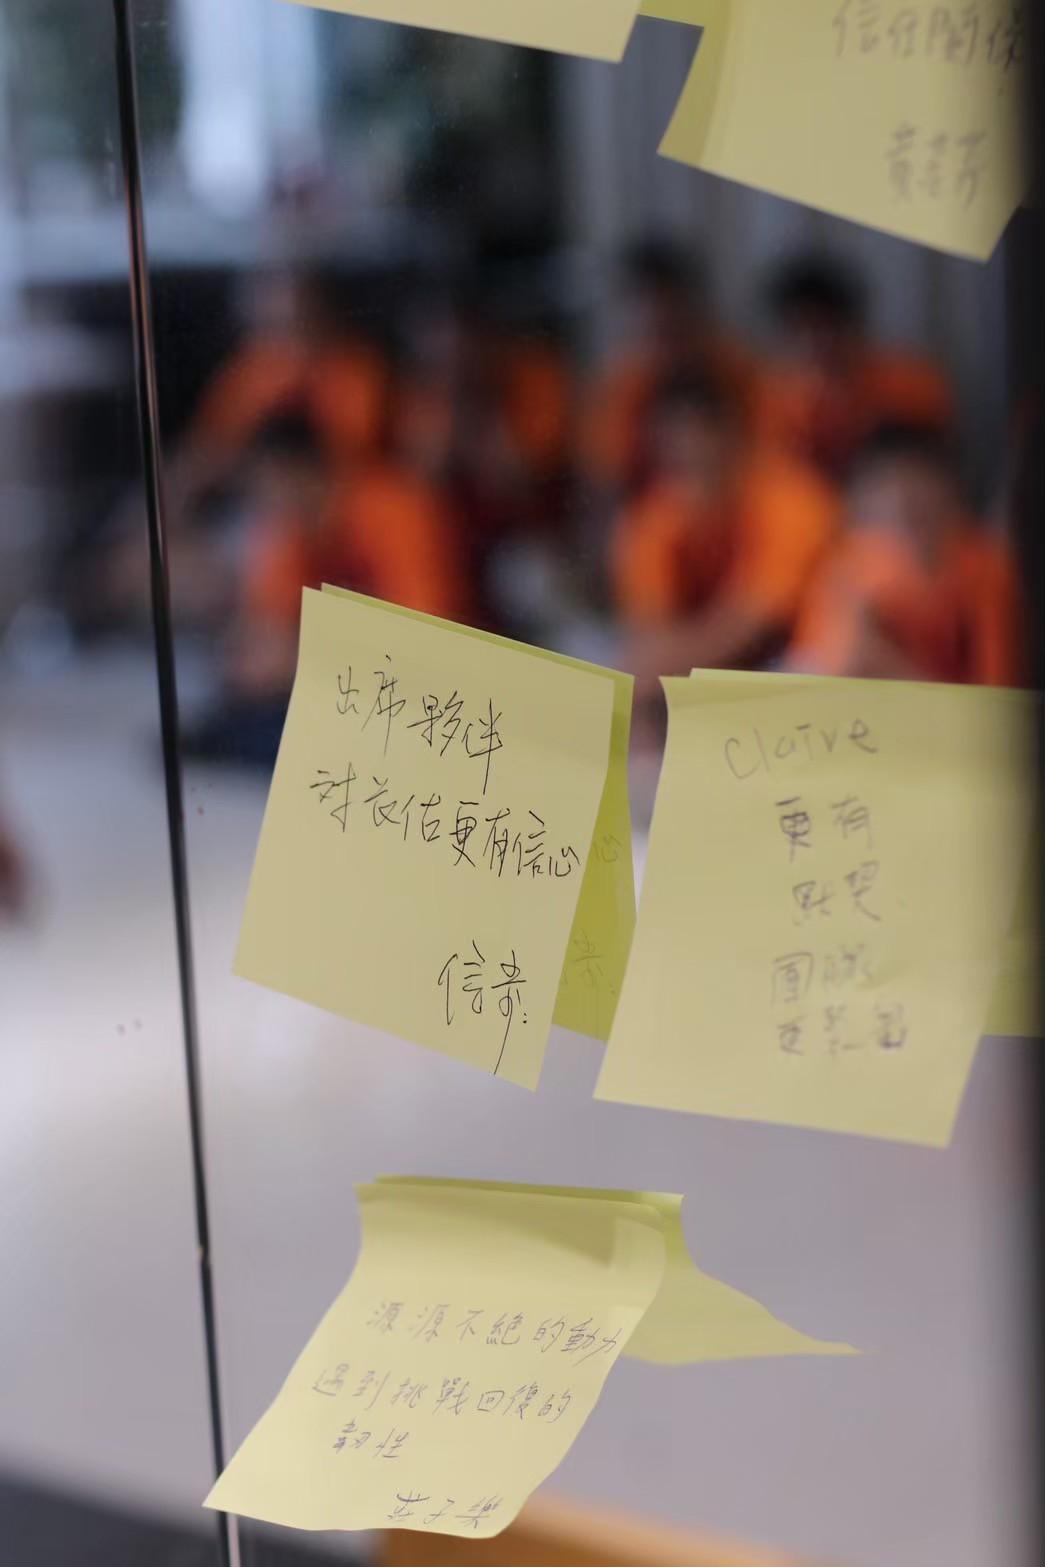 信任關係
出席夥伴
對衣估更有信心
Claire
更有
默契
團隊
源源不絕的動力
遇到挑戰回復的
韌性